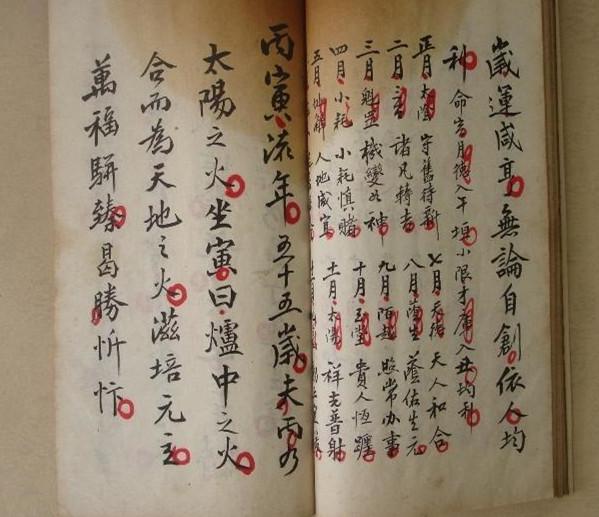 歲運咸亨無論自創依人均
利命宮月德入午垣小限才庫入丑均利
正月太陰守舊待新
七月天德天人和合
二月諸凡轉吉
八月蔭生蔭佑生元
三月魁罡機變如神
九月陌越照常办事
四月小耗小耗慎賭
十月玉堂貴人恆躔
五月人地咸宜
十一月太陽祥光普射
丙寅流年五十五歲未雨乃
太陽之火坐寅曰爐中之火
合而為天地之火滋培元主
萬福駢臻曷勝忻忭